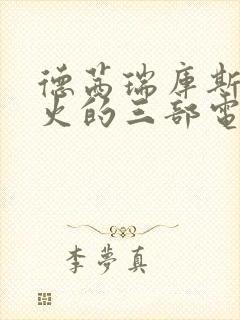 德茜瑞库斯
火的三部電
李夢真